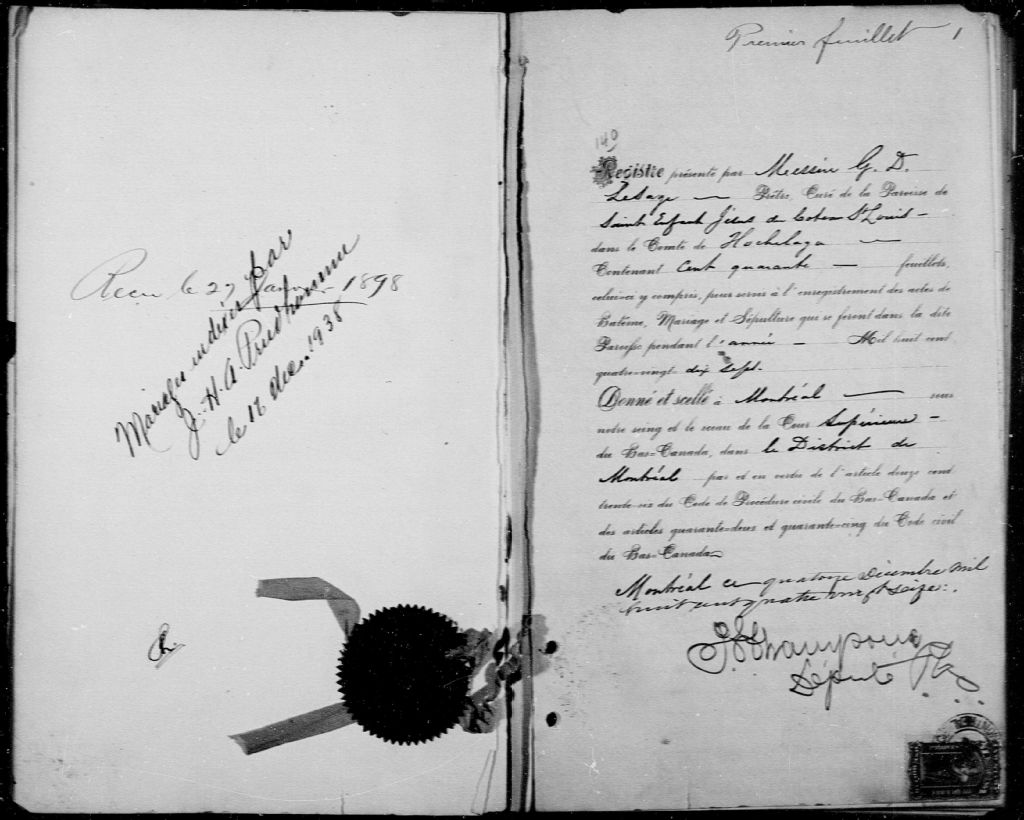 Reçu le 27 Janvier 1898
Mariages indexés par
J. H. A. Prudhomme
le 12 déc. 1938
Premier feuillet 1
140
Registre présenté par Messire G. D.
Lesage — Prêtre, Curé de la Paroisse de
Saint Enfant Jésus du Coteau St Louis —
dans le Comté de Hochelaga —
Contenant Cent quarante — feuillets,
celui-ci y compris, pour servir à l'enregistrement des actes de
Batême, Mariage et Sépulture qui se feront dans la dite
Paroisse pendant l'année — Mil huit cent
quatre-vingt dix sept.
Donné et scellé à Montréal — sous
notre seing et le sceau de la Cour Supérieure —
du Bas-Canada, dans le District de
Montréal par et en vertu de l'article douze cent
trente-six du Code de Procédure civile du Bas-Canada et
des articles quarante-deux et quarante-cinq du Code civil
du Bas-Canada
Montréal ce quatorze Décembre mil
huit cent quatre vingt seize.
Député